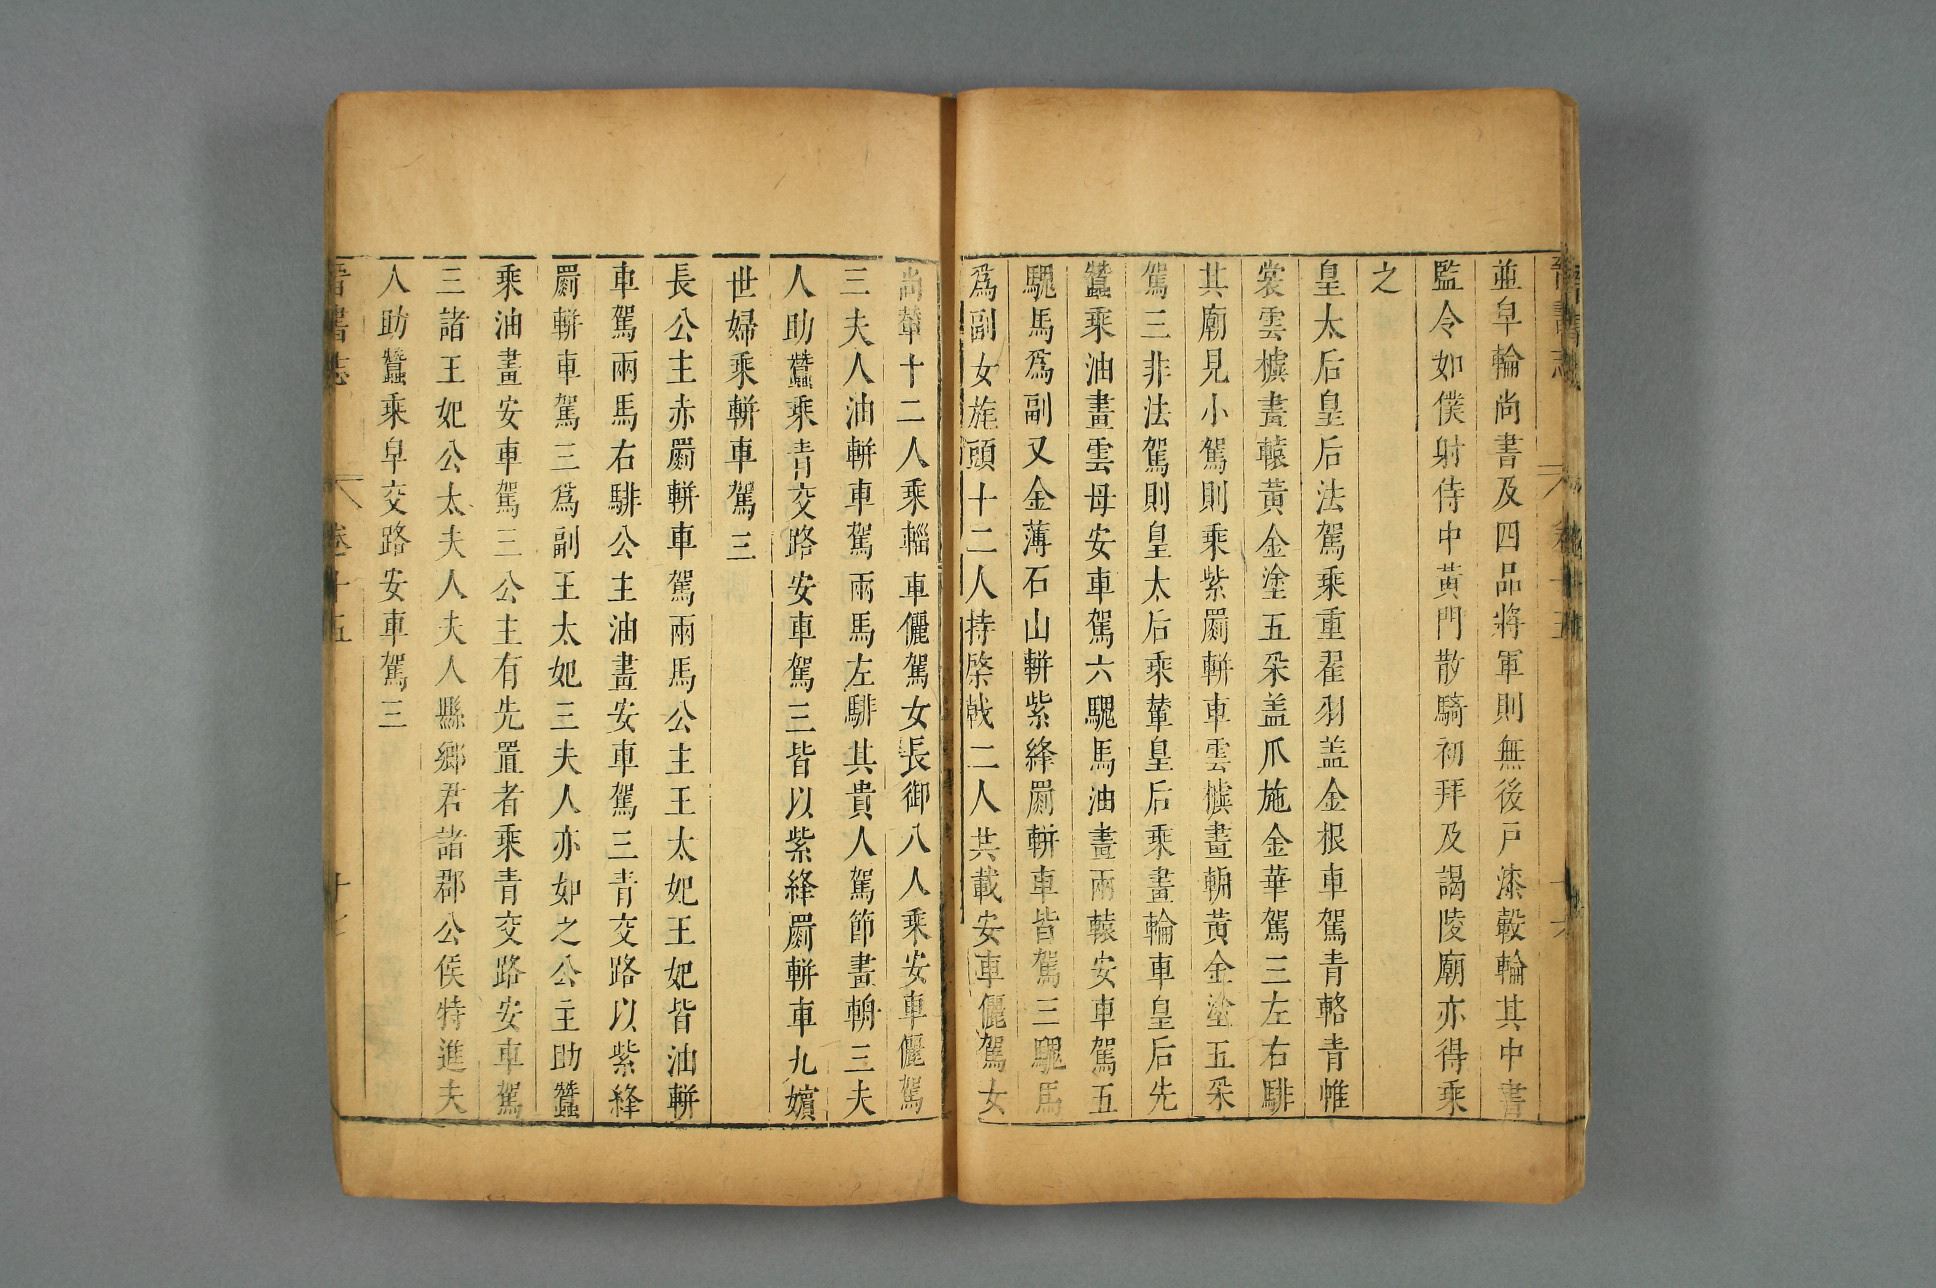 並皁輪尚書及四品將軍則無後戸漆轂輪其中書
監令如僕射侍中黃門散騎初拜及謁陵廟亦得乘
之
皇太后皇后法駕乘重翟羽盖金根車駕青輅青帷
裳雲㯫畫轅黃金塗五采盖爪施金華駕三左右騑
其廟見小駕則乘紫罽軿車雲㯫畫輈黃金塗五采
駕三非法駕則皇太后乘輦皇后乘畫輪車皇后先
蠶乘油畫雲母安車駕六騩馬油畫兩轅安車駕五
騩馬爲副又金薄石山軿紫絳罽軿車皆駕三騩馬
爲副女旄頭十二人持棨戟二人共載安車儷駕女
尚輦十二人乘輜車儷駕女長御八人乘安車儷駕
三夫人油軿車駕兩馬左騑其貴人駕節畫輈三夫
人助蠶乘青交路安車駕三皆以紫絳罽軿車九嬪
世婦乘軿車駕三
長公主赤罽軿車駕兩馬公主王太妃王妃皆油軿
車駕兩馬右騑公主油畫安車駕三青交路以紫絳
罽軿車駕三爲副王太妃三夫人亦如之公主助蠶
乘油畫安車駕三公主有先置者乘青交路安車駕
三諸王妃公太夫人夫人縣鄉君諸郡公侯特進夫
人助蠶乘皁交路安車駕三
晉書志 卷十五 十七